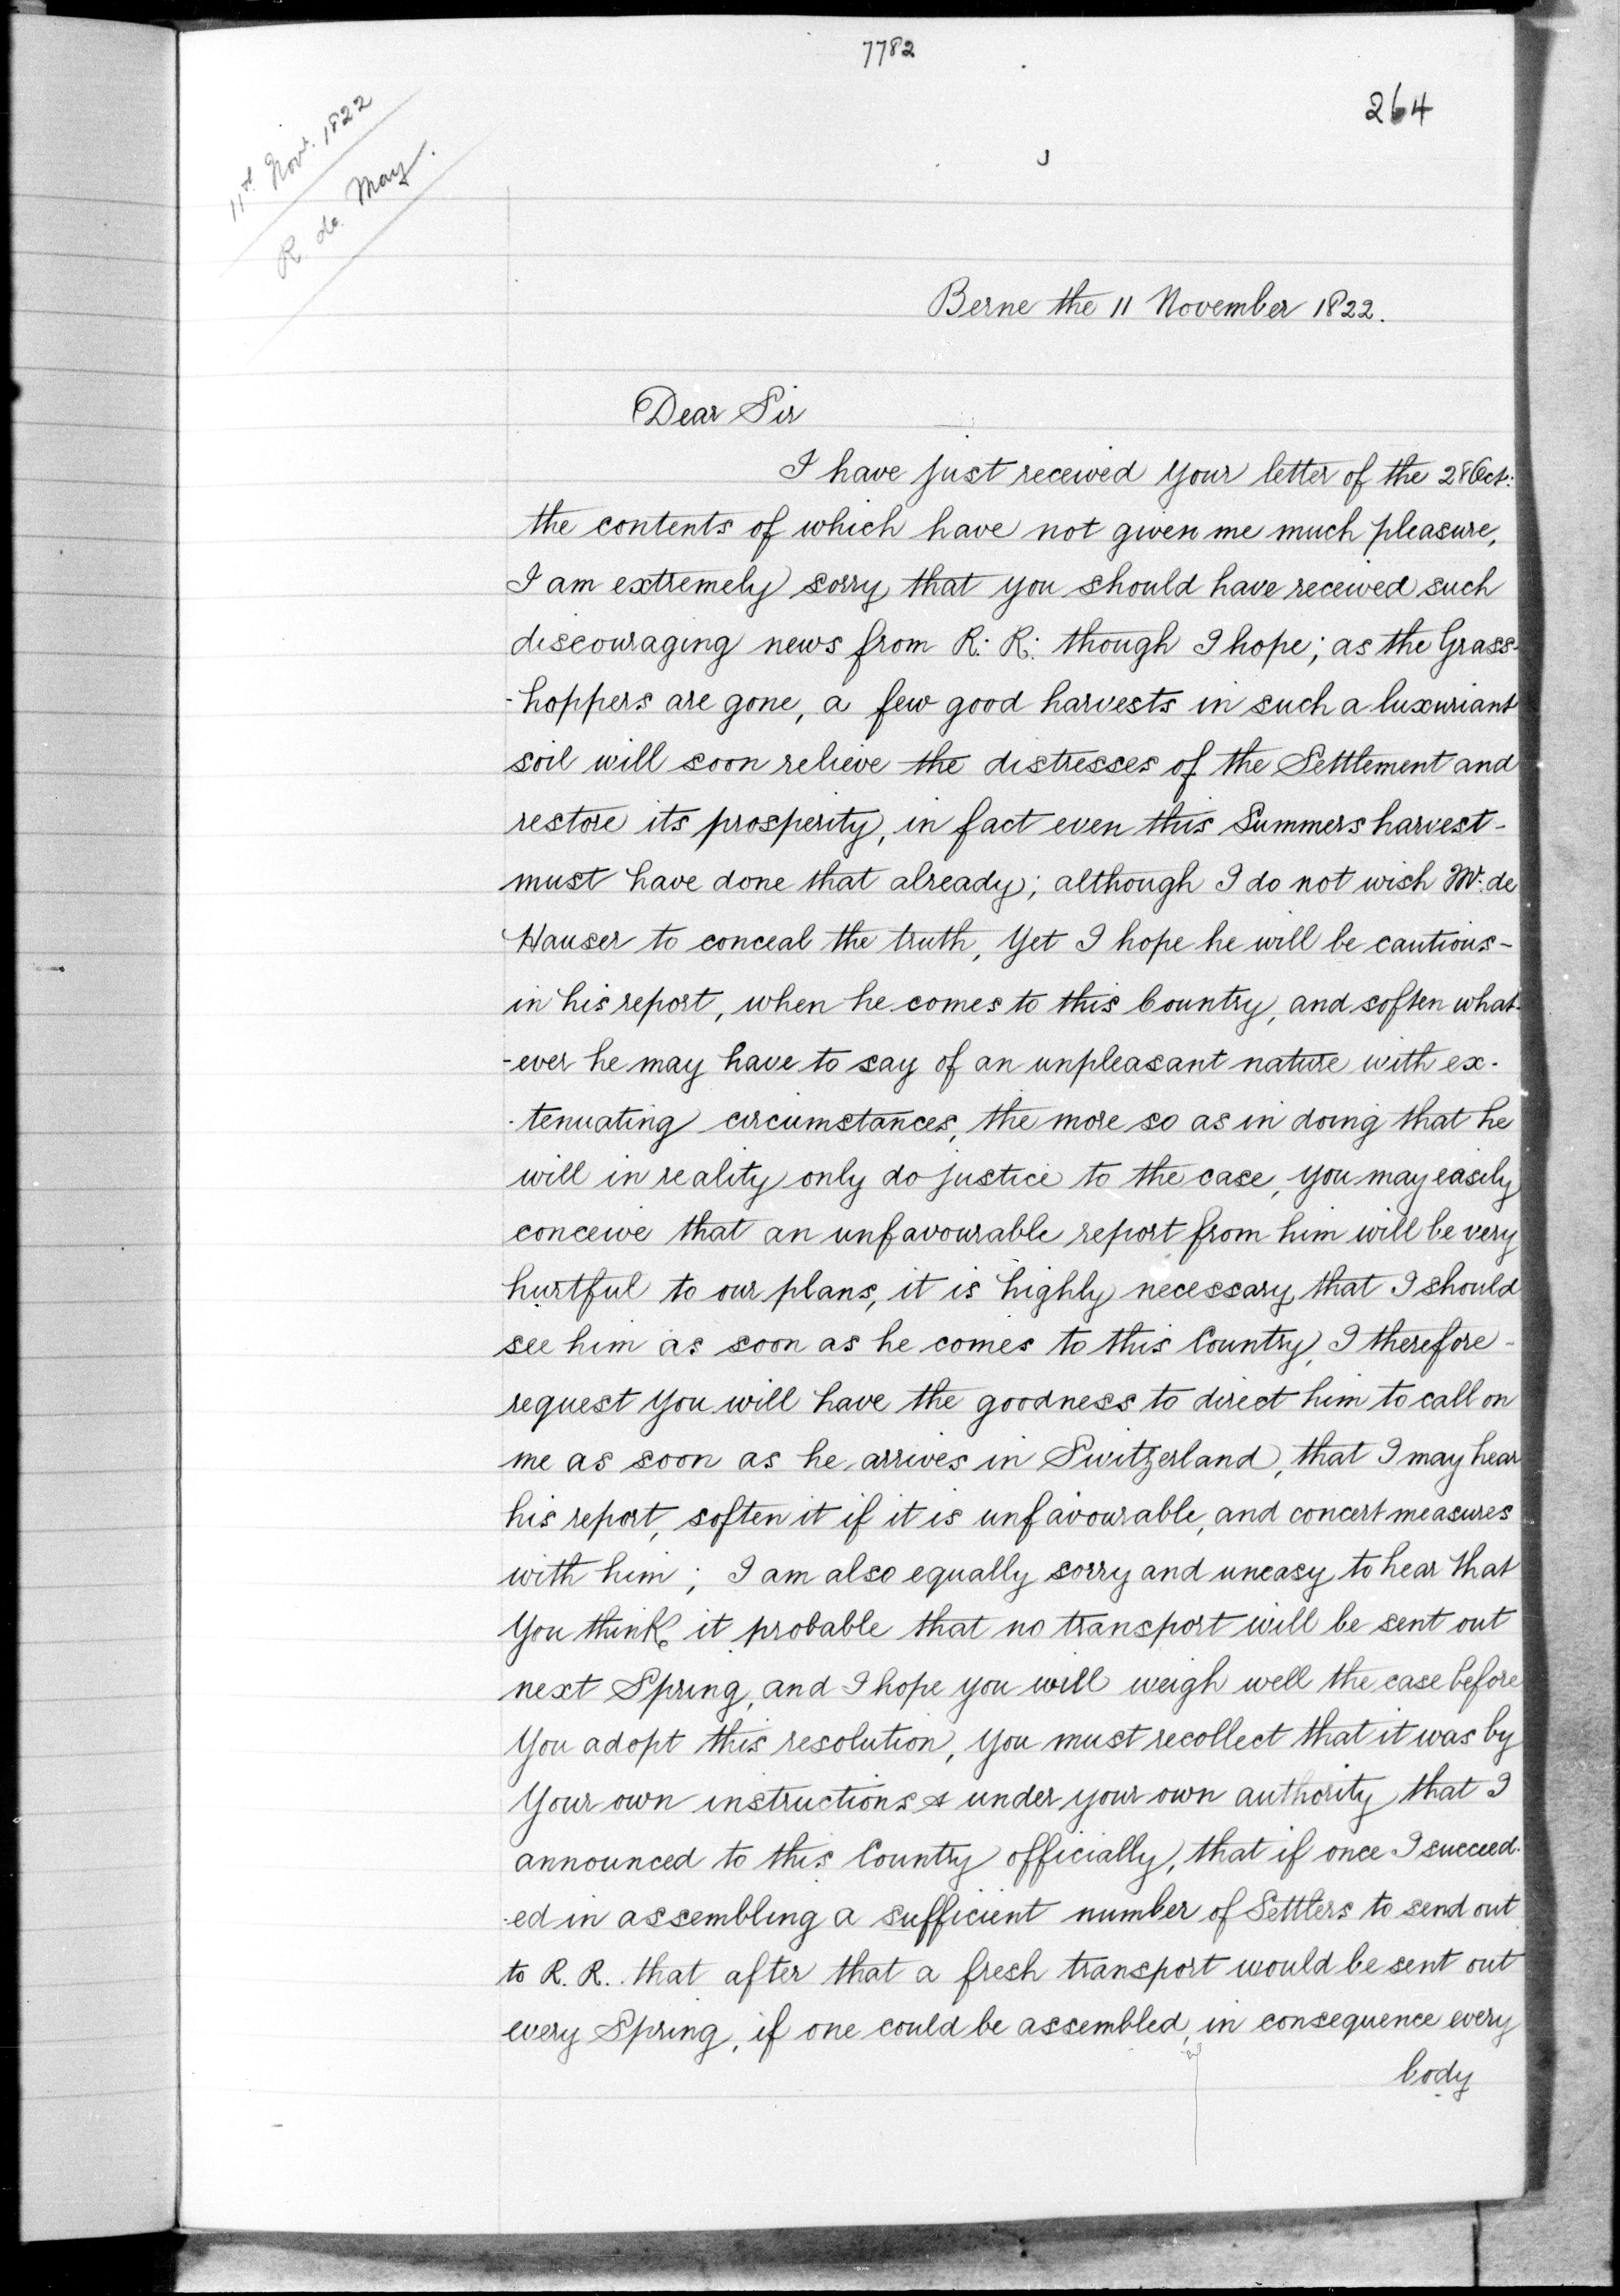 7782
264
11th Novr. 1822
R. de May.
Berne the 11 November 1822.
Dear Sir
I have just received your letter of the 28 Oct:
the contents of which have not given me much pleasure,
I am extremely sorry that you should have received such
discouraging news from R: R: though I hope; as the Grass-
-hoppers are gone, a few good harvests in such a luxuriant
soil will soon relieve the distresses of the Settlement and
restore its prosperity, in fact even this Summers harvest-
must have done that already; although I do not wish Mr: de
Hauser to conceal the truth, Yet I hope he will be cautious-
in his report, when he comes to this Country, and soften what-
-ever he may have to say of an unpleasant nature with ex-
-tenuating circumstances, the more so as in doing that he
will in reality only do justice to the case, you may easily
conceive that an unfavourable report from him will be very
hurtful to our plans, it is highly necessary that I should
see him as soon as he comes to this Country, I therefore-
request you will have the goodness to direct him to call on
me as soon as he arrives in Switzerland, that I may hear
his report, soften it if it is unfavourable, and concert measures
with him; I am also equally sorry and uneasy to hear that
You think it probable that no transport will be sent out
next Spring, and I hope you will weigh well the case before
You adopt this resolution, You must recollect that it was by
Your own instructions & under your own authority that I
announced to this Country officially, that if once I succeed-
-ed in assembling a sufficient number of Settlers to send out
to R. R. that after that a fresh transport would be sent out
every Spring, if one could be assembled, in consequence every
body